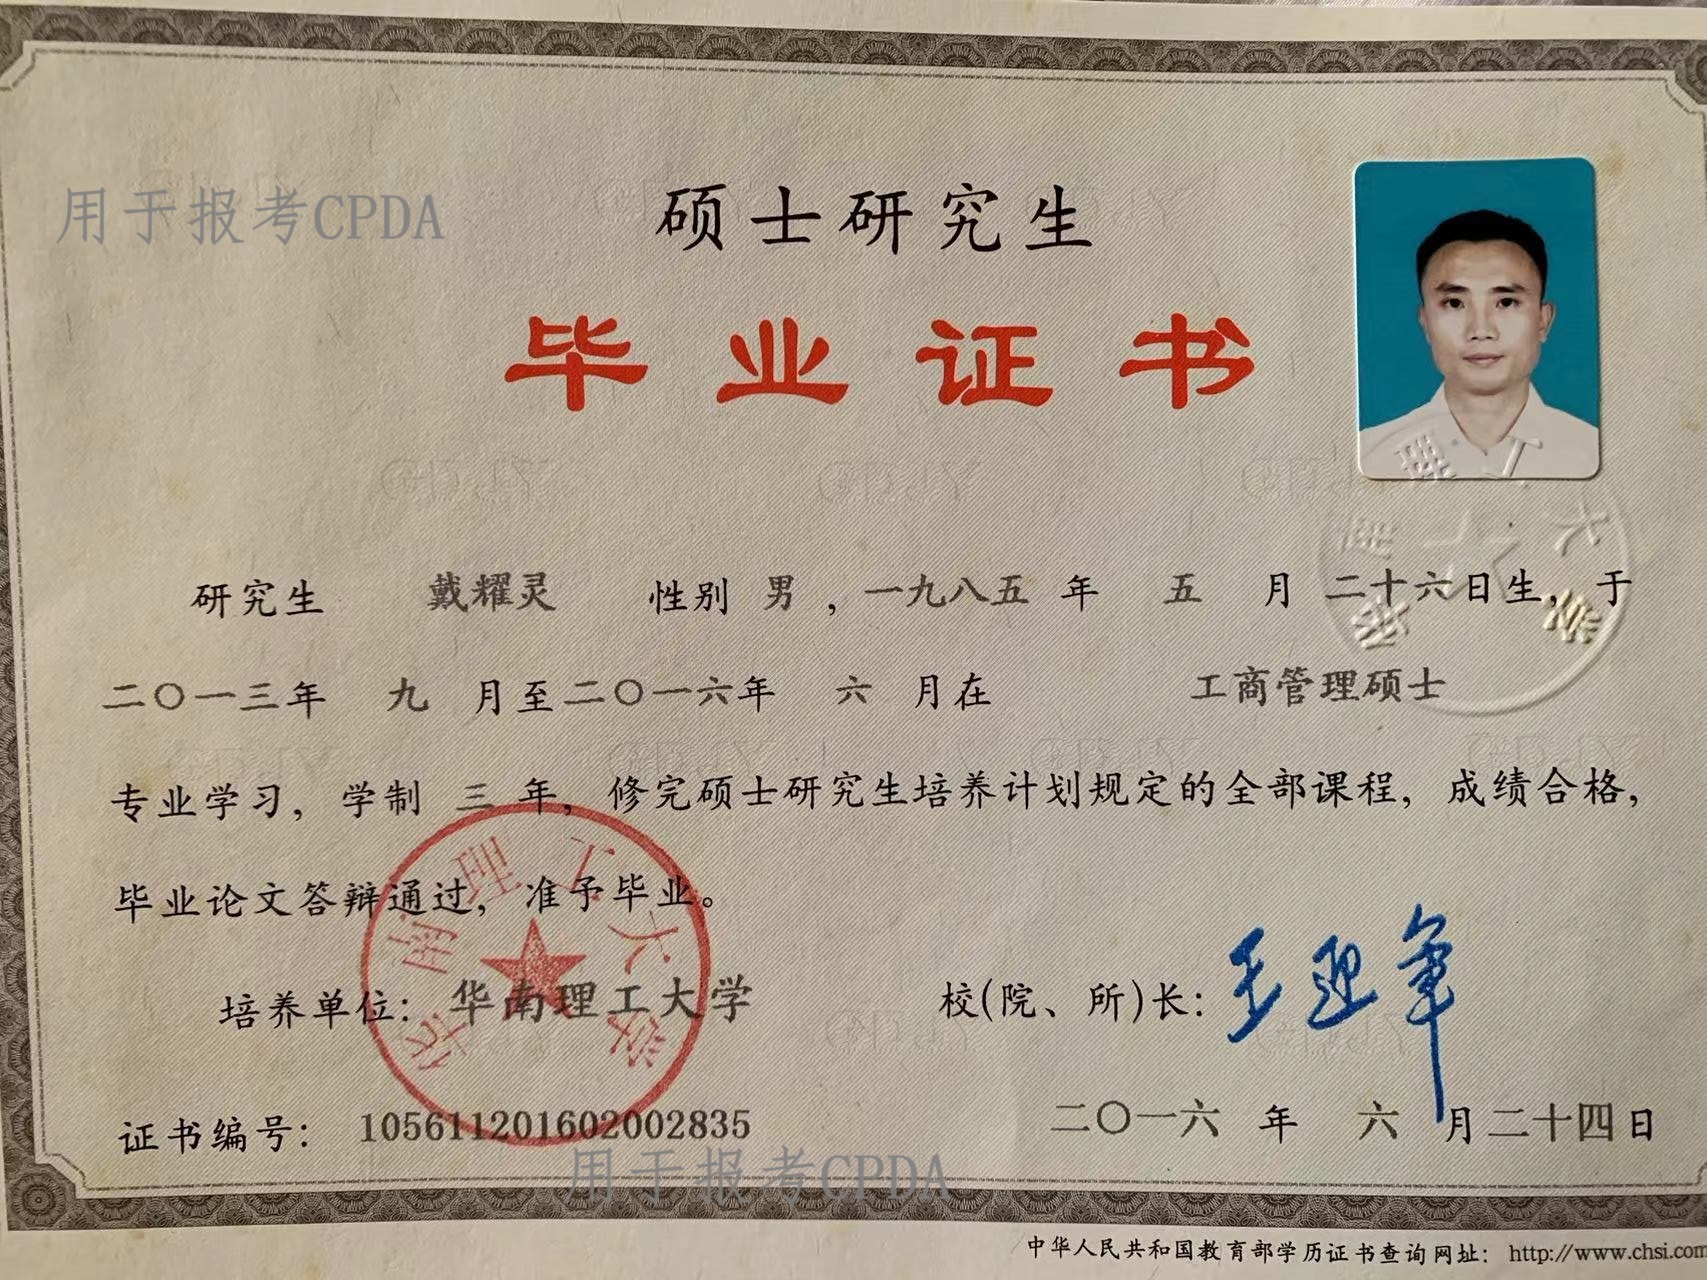 用于报考CPDA
硕士研究生
毕业证书
研究生 戴耀灵 性别 男，一九八五 年 五 月 二十六日生，于
二〇一三年 九 月至二〇一六年 六 月在 工商管理硕士
专业学习，学制 三 年，修完硕士研究生培养计划规定的全部课程，成绩合格，
毕业论文答辩通过，准予毕业。
华南理工大学
培养单位：华南理工大学 校(院、所)长：王迎军
证书编号：105611201602002835 二〇一六 年 六 月二十四日
用于报考CPDA
中华人民共和国教育部学历证书查询网址：http://www.chsi.com